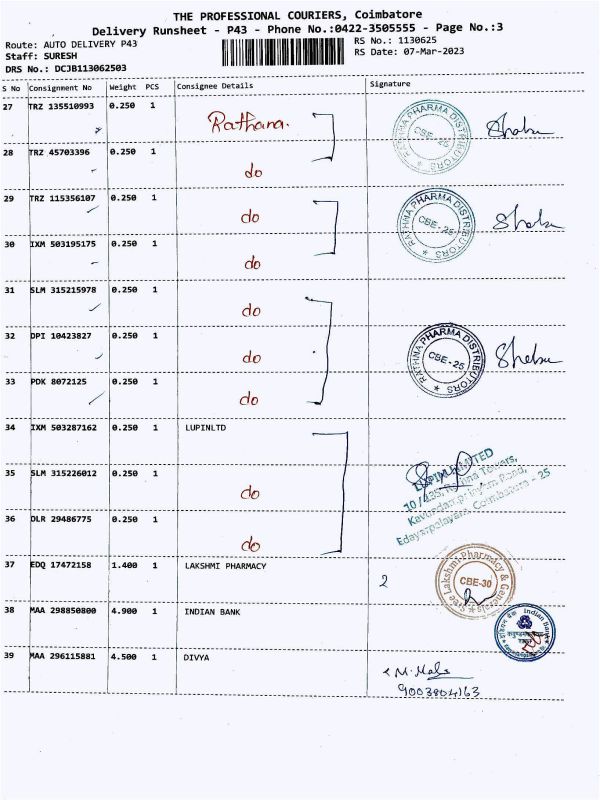 THE PROFESSIONAL COURIERS, Coimbatore
Delivery Runsheet - P43 - Phone No.:0422-3505555 - Page No.:3
Route: AUTO DELIVERY P43
RS No.: 1130625
Staff: SURESH
RS Date: 07-Mar-2023
DRS No.: DCJB113062503
S No Consignment No Weight PCS Consignee Details Signature
27 TRZ 135510993 0.250 1 Rathana. RATHNA PHARMA DISTRIBUTORS CBE-25
28 TRZ 45703396 0.250 1 do
29 TRZ 115356107 0.250 1 do RATHNA PHARMA DISTRIBUTORS CBE-25
30 IXM 503195175 0.250 1 do
31 SLM 315215978 0.250 1 do
32 DPI 10423827 0.250 1 do RATHNA PHARMA DISTRIBUTORS CBE-25
33 PDK 8072125 0.250 1 do
34 IXM 503287162 0.250 1 LUPINLTD
LUPIN LIMITED
35 SLM 315226012 0.250 1 do
36 DLR 29486775 0.250 1 do
37 EDQ 17472158 1.400 1 LAKSHMI PHARMACY 2 Sree Lakshmi Pharmacy & Generals CBE-30
38 MAA 298850800 4.900 1 INDIAN BANK Indian Bank
39 MAA 296115881 4.500 1 DIVYA
9003804163